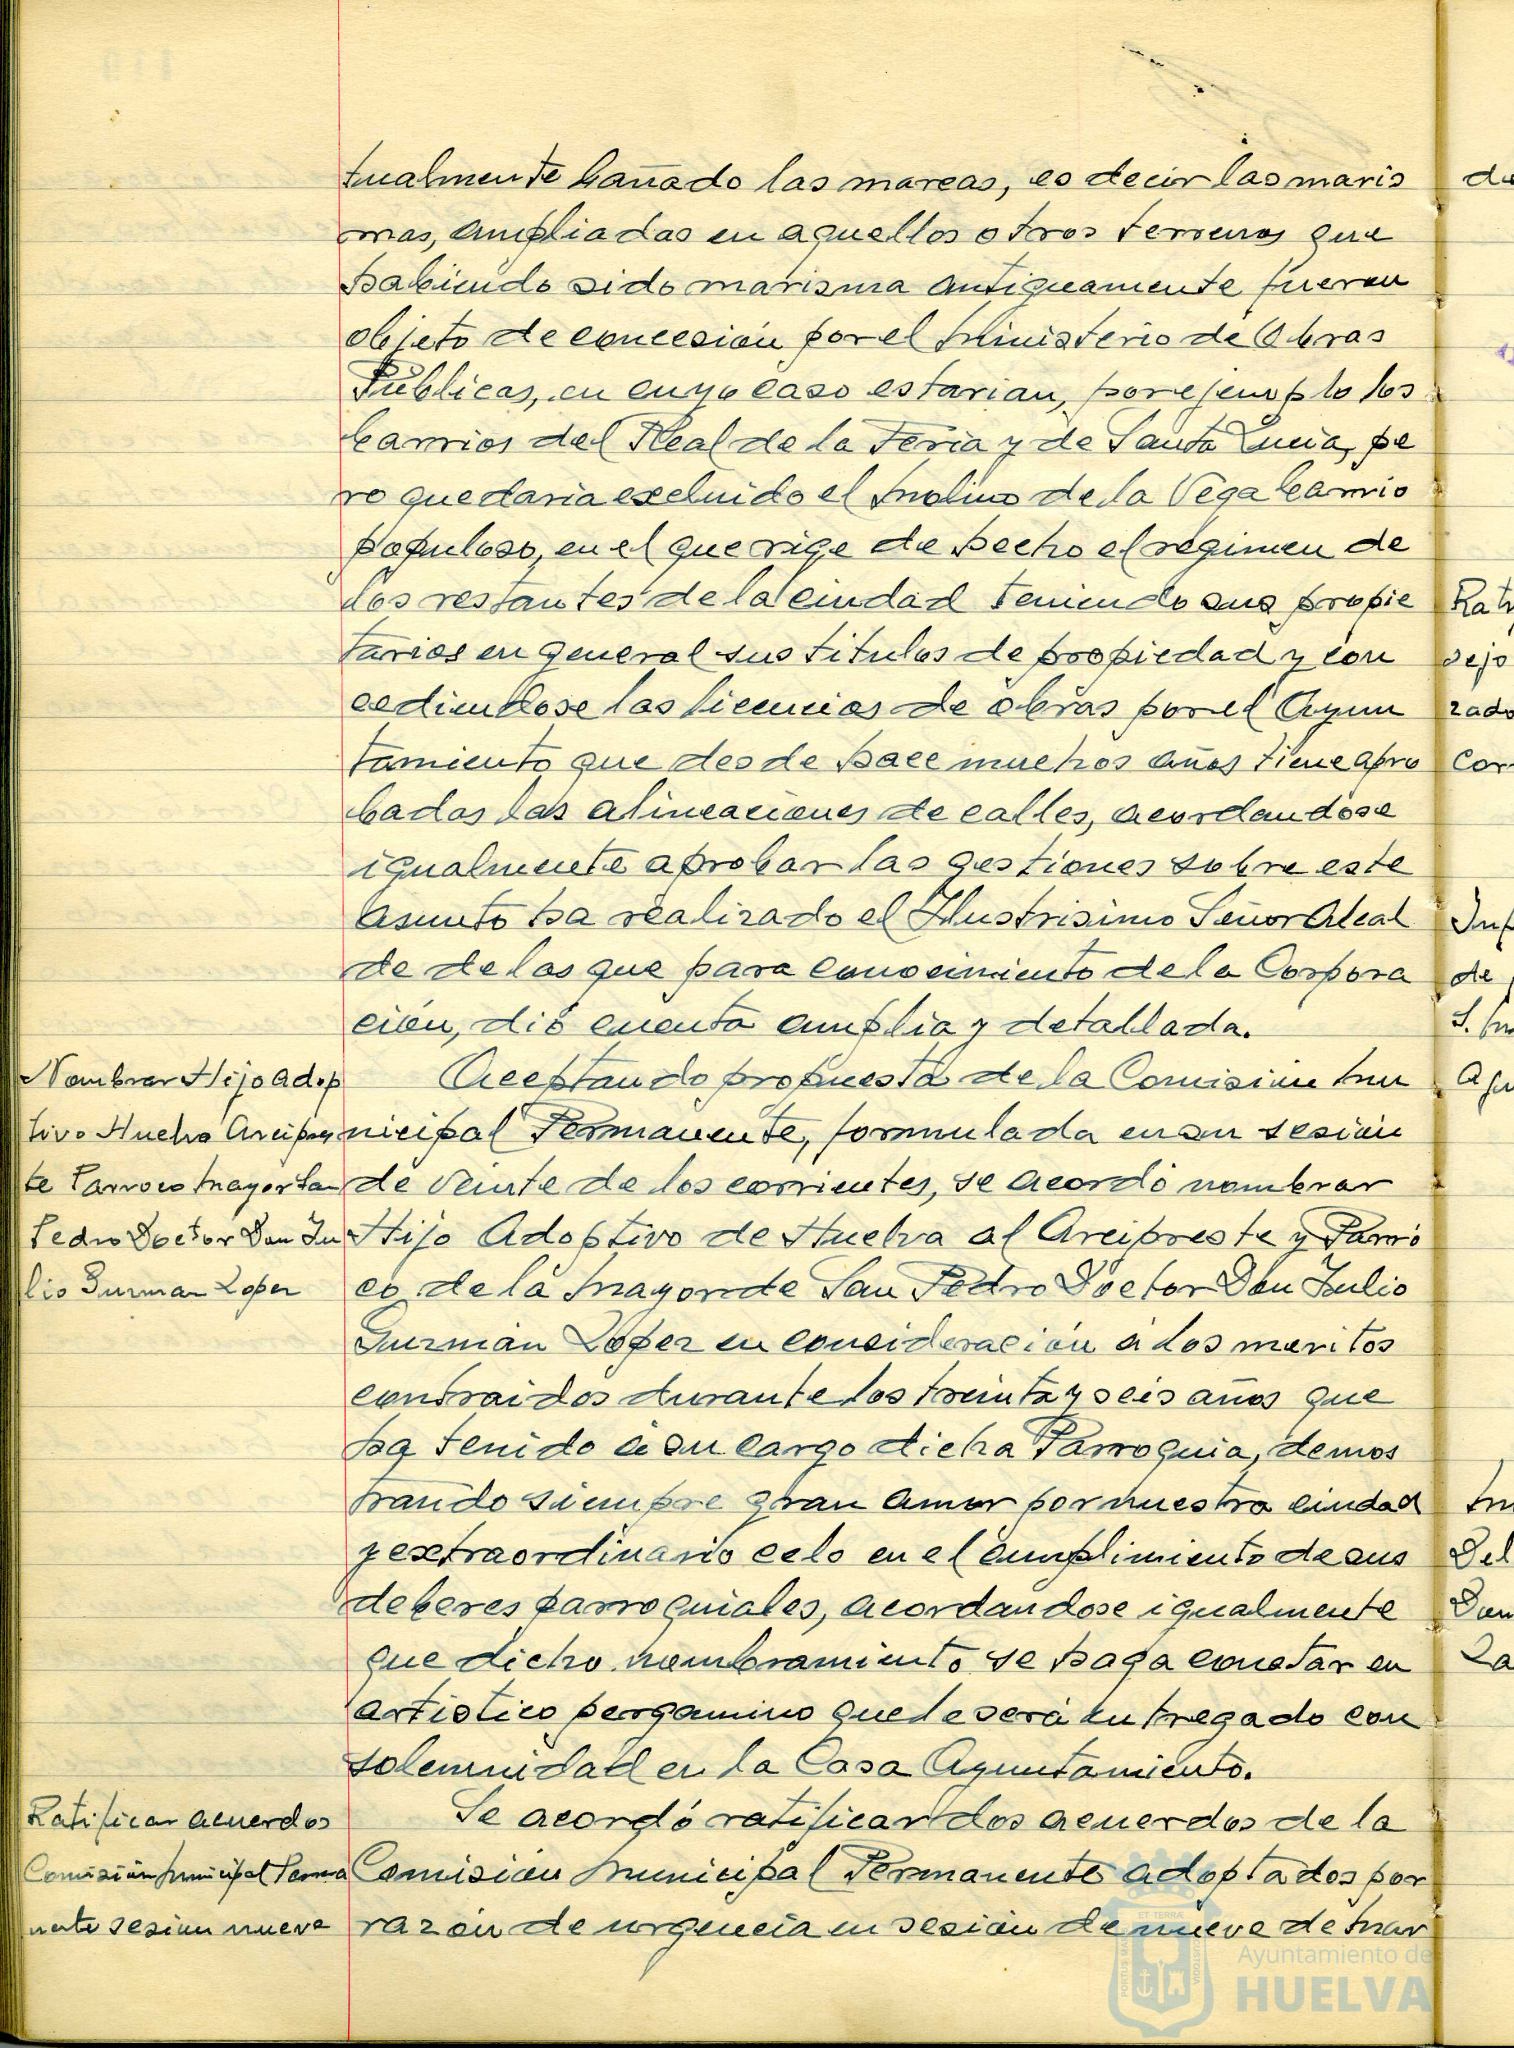 tualmente bañado las mareas, es decir las maris
mas, ampliadas en aquellos otros terrenos que
habiendo sido marisma antiguamente fueran
objeto de concesión por el Ministerio de Obras
Públicas, en cuyo caso estarian, por ejemplo los
barrios del Real de la Feria y de Santa Lucia, pe
ro quedaria excluido el Molino de la Vega barrio
populoso, en el que rige de hecho el régimen de
los restantes de la ciudad teniendo sus propie
tarios en general sus titulos de propiedad y con
cediendose las licencias de obras por el Ayun
tamiento que desde hace muchos años tiene apro
badas las alineaciones de calles, acordandose
igualmente aprobar las gestiones sobre este
asunto ha realizado el Ilustrisimo Señor Alcal
de de las que para conocimiento de la Corpora
ción, dió cuenta amplia y detallada.
Nombrar Hijo Adop
tivo Huelva Arcipres
te Parroco Mayor San
Pedro Doctor Don Ju
lio Guzman Lopez
Aceptando propuesta de la Comisión Mu
nicipal Permanente, formulada en su sesión
de veinte de los corrientes, se acordó nombrar
Hijo Adoptivo de Huelva al Arcipreste y Parró
co de la Mayor de San Pedro Doctor Don Julio
Guzmán López en consideración a los meritos
contraidos durante los treinta y seis años que
ha tenido a su cargo dicha Parroquia, demos
trando siempre gran amor por nuestra ciudad
y extraordinario celo en el cumplimiento de sus
deberes parroquiales, acordandose igualmente
que dicho nombramiento se haga constar en
artistico pergamino que le será entregado con
solemnidad en la Casa Ayuntamiento.
Ratificar acuerdos
Comisión Municipal Perma
nente sesion nueve
Se acordó ratificar los acuerdos de la
Comisión Municipal Permanente adoptados por
razón de urgencia en sesión de nueve de Mar
de
Rat
sejo
zado
Cor
de
Del
Don
Ayuntamiento de
HUELVA